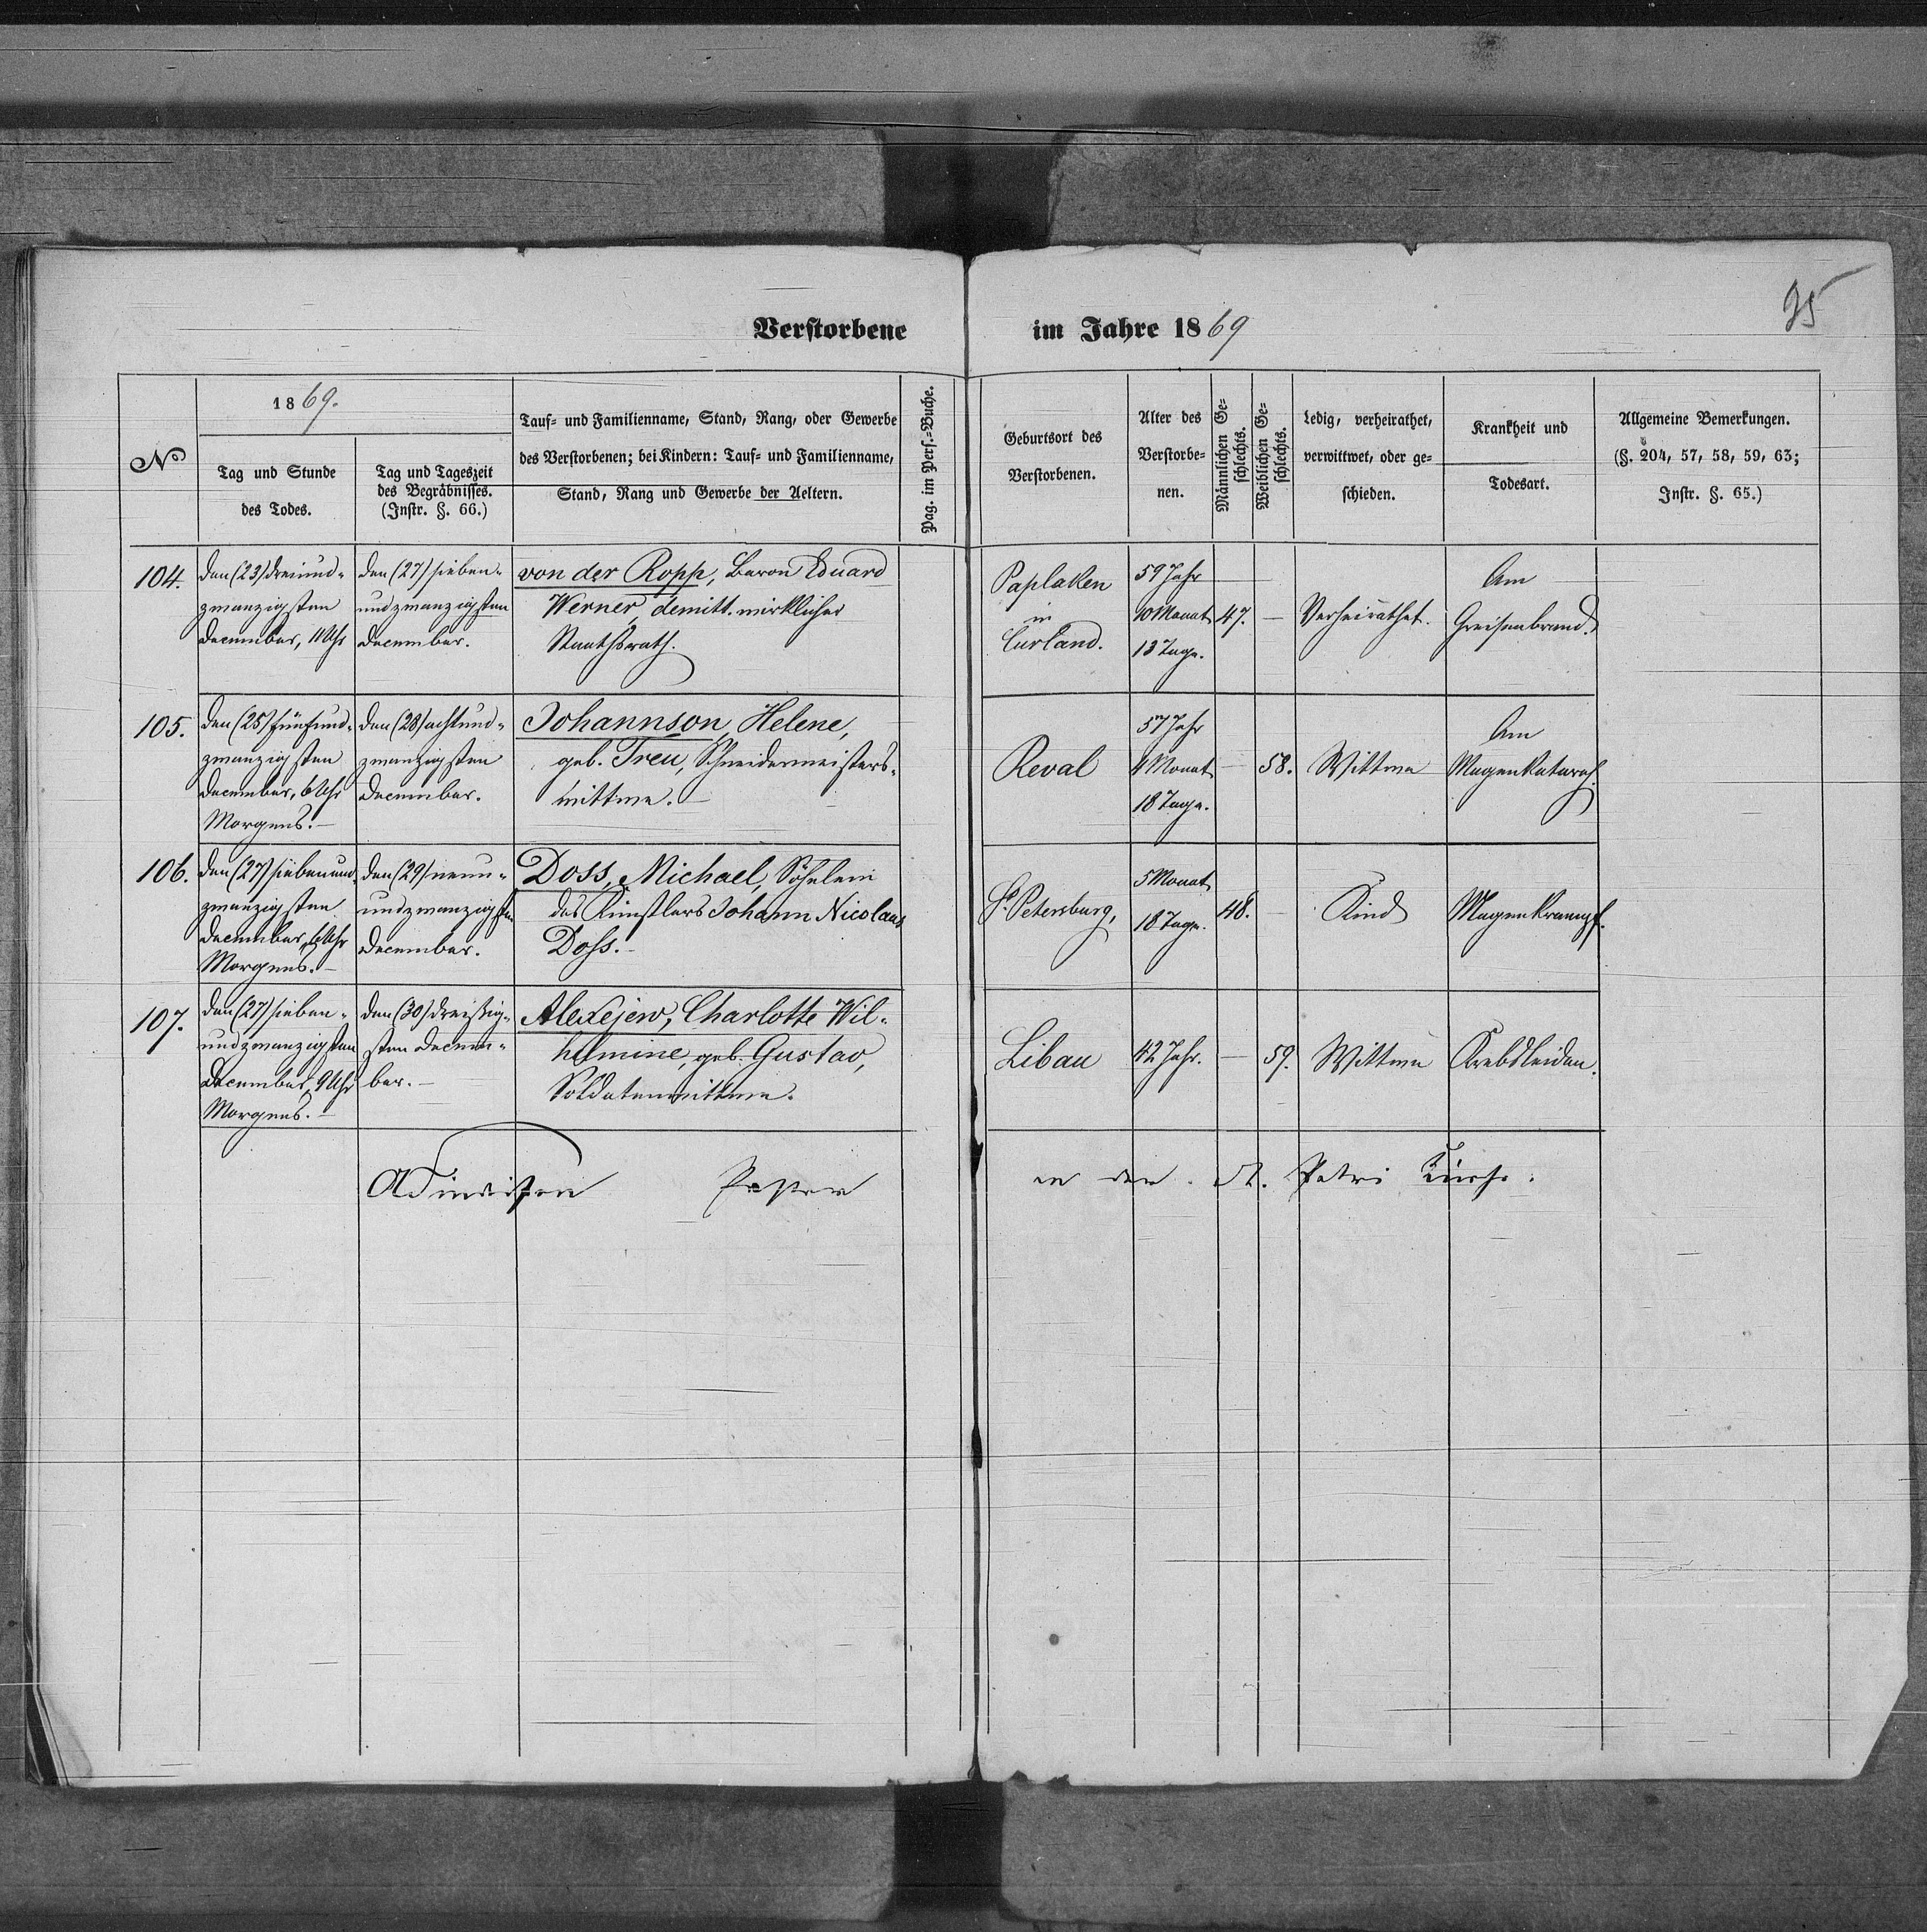 95
Verstorbene im Jahre 1869
№
1869.
Tag und Stunde
des Todes.
Tag und Tageszeit
des Begräbnisses.
(Instr. §. 66.)
Tauf- und Familienname, Stand, Rang, oder Gewerbe
des Verstorbenen; bei Kindern: Tauf- und Familienname,
Stand, Rang und Gewerbe der Aeltern.
Pag. im Pers.-Buche.
Geburtsort des
Verstorbenen.
Alter des
Verstorbe-
nen.
Männlichen Ge-
schlechts.
Weiblichen Ge-
schlechts.
Ledig, verheirathet,
verwittwet, oder ge-
schieden.
Krankheit und
Todesart.
Allgemeine Bemerkungen.
(§. 204, 57, 58, 59, 63;
Instr. §. 65.)
104.
den (23) dreiund-
zwanzigsten
December, 11 Uhr
den (27) sieben-
undzwanzigsten
December.
von der Ropp, Baron Eduard
Werner, demitt. wirklicher
Staatsrath.
Paplaken
in
Curland.
59 Jahr
10 Monat
13 Tage.
47.
—
Verheirathet.
Am
Greisenbrand.
105.
den (25) fünfund-
zwanzigsten
December, 6 Uhr
Morgens. —
den (28) achtund-
zwanzigsten
December.
Johannson, Helene,
geb. Treu, Schneidermeisters-
wittwe. —
Reval
57 Jahr
4 Monat
18 Tage.
—
58.
Wittwe
Am
Magenkatarrh.
106.
den (27) siebenund-
zwanzigsten
December, 6 Uhr
Morgens. —
den (29) neun-
undzwanzigsten
December.
Doss, Michael, Söhnlein
des Künstlers Johann Nicolaus
Doss. —
St. Petersburg,
5 Monat
18 Tage.
48.
—
Kind
Magenkrampf.
107.
den (27) sieben-
undzwanzigsten
December, 9 Uhr
Morgens. —
den (30) dreißig-
sten Decem-
ber. —
Alexejew, Charlotte Wil-
helmine, geb. Gustav,
Soldatenwittwe.
Libau
42 Jahr.
—
59.
Wittwe
Krebsleiden.
Pastor an der St. Petri Kirche.